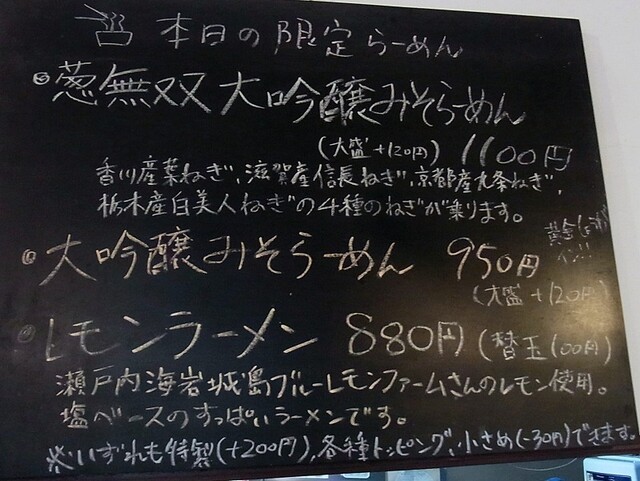 本日の限定らーめん
葱無双大吟醸みそらーめん
(大盛+120円) 1100円
香川産葉ねぎ、滋賀産信長ねぎ、京都産九条ねぎ、
栃木産白美人ねぎの4種のねぎが乗ります。
大吟醸みそらーめん 950円
(大盛+120円)
レモンラーメン 880円(替玉100円)
瀬戸内海岩城島ブルーレモンファームさんのレモン使用。
塩ベースのすっぱいラーメンです。
※いずれも特製(+200円)、各種トッピング、小さめ(-30円)できます。